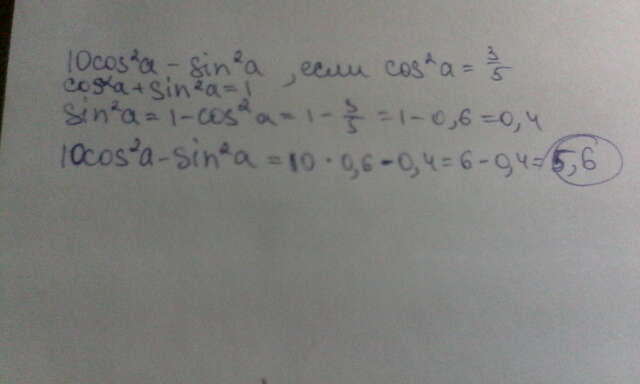 10cos²a - sin²a, если cos²a = 3/5
cos²a + sin²a = 1
sin²a = 1 - cos²a = 1 - 3/5 = 1 - 0,6 = 0,4
10cos²a - sin²a = 10 · 0,6 - 0,4 = 6 - 0,4 = 5,6